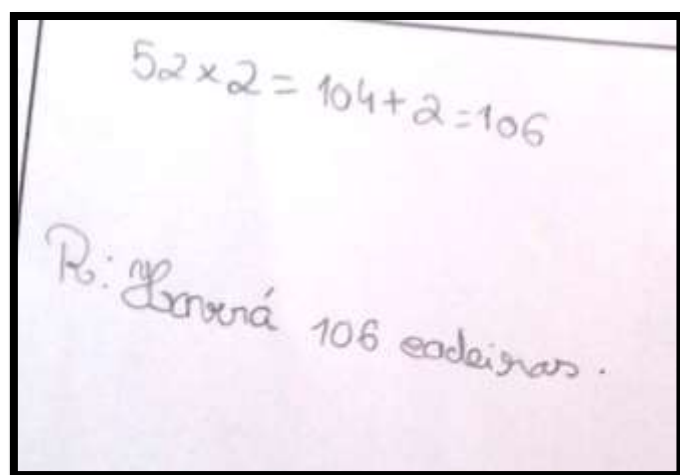 52 x 2 = 104 + 2 = 106
R: Haverá 106 cadeiras.